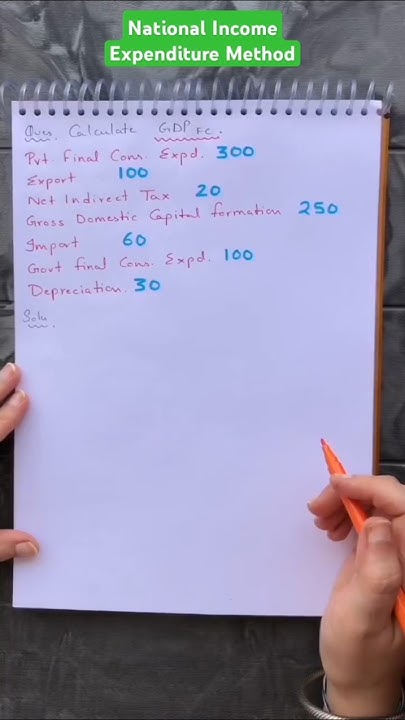 National Income
Expenditure Method
Ques. Calculate GDP FC.
Pvt. Final Cons. Expd. 300
Export 100
Net Indirect Tax 20
Gross Domestic Capital formation 250
Import 60
Govt final Cons. Expd. 100
Depreciation. 30
Solu.